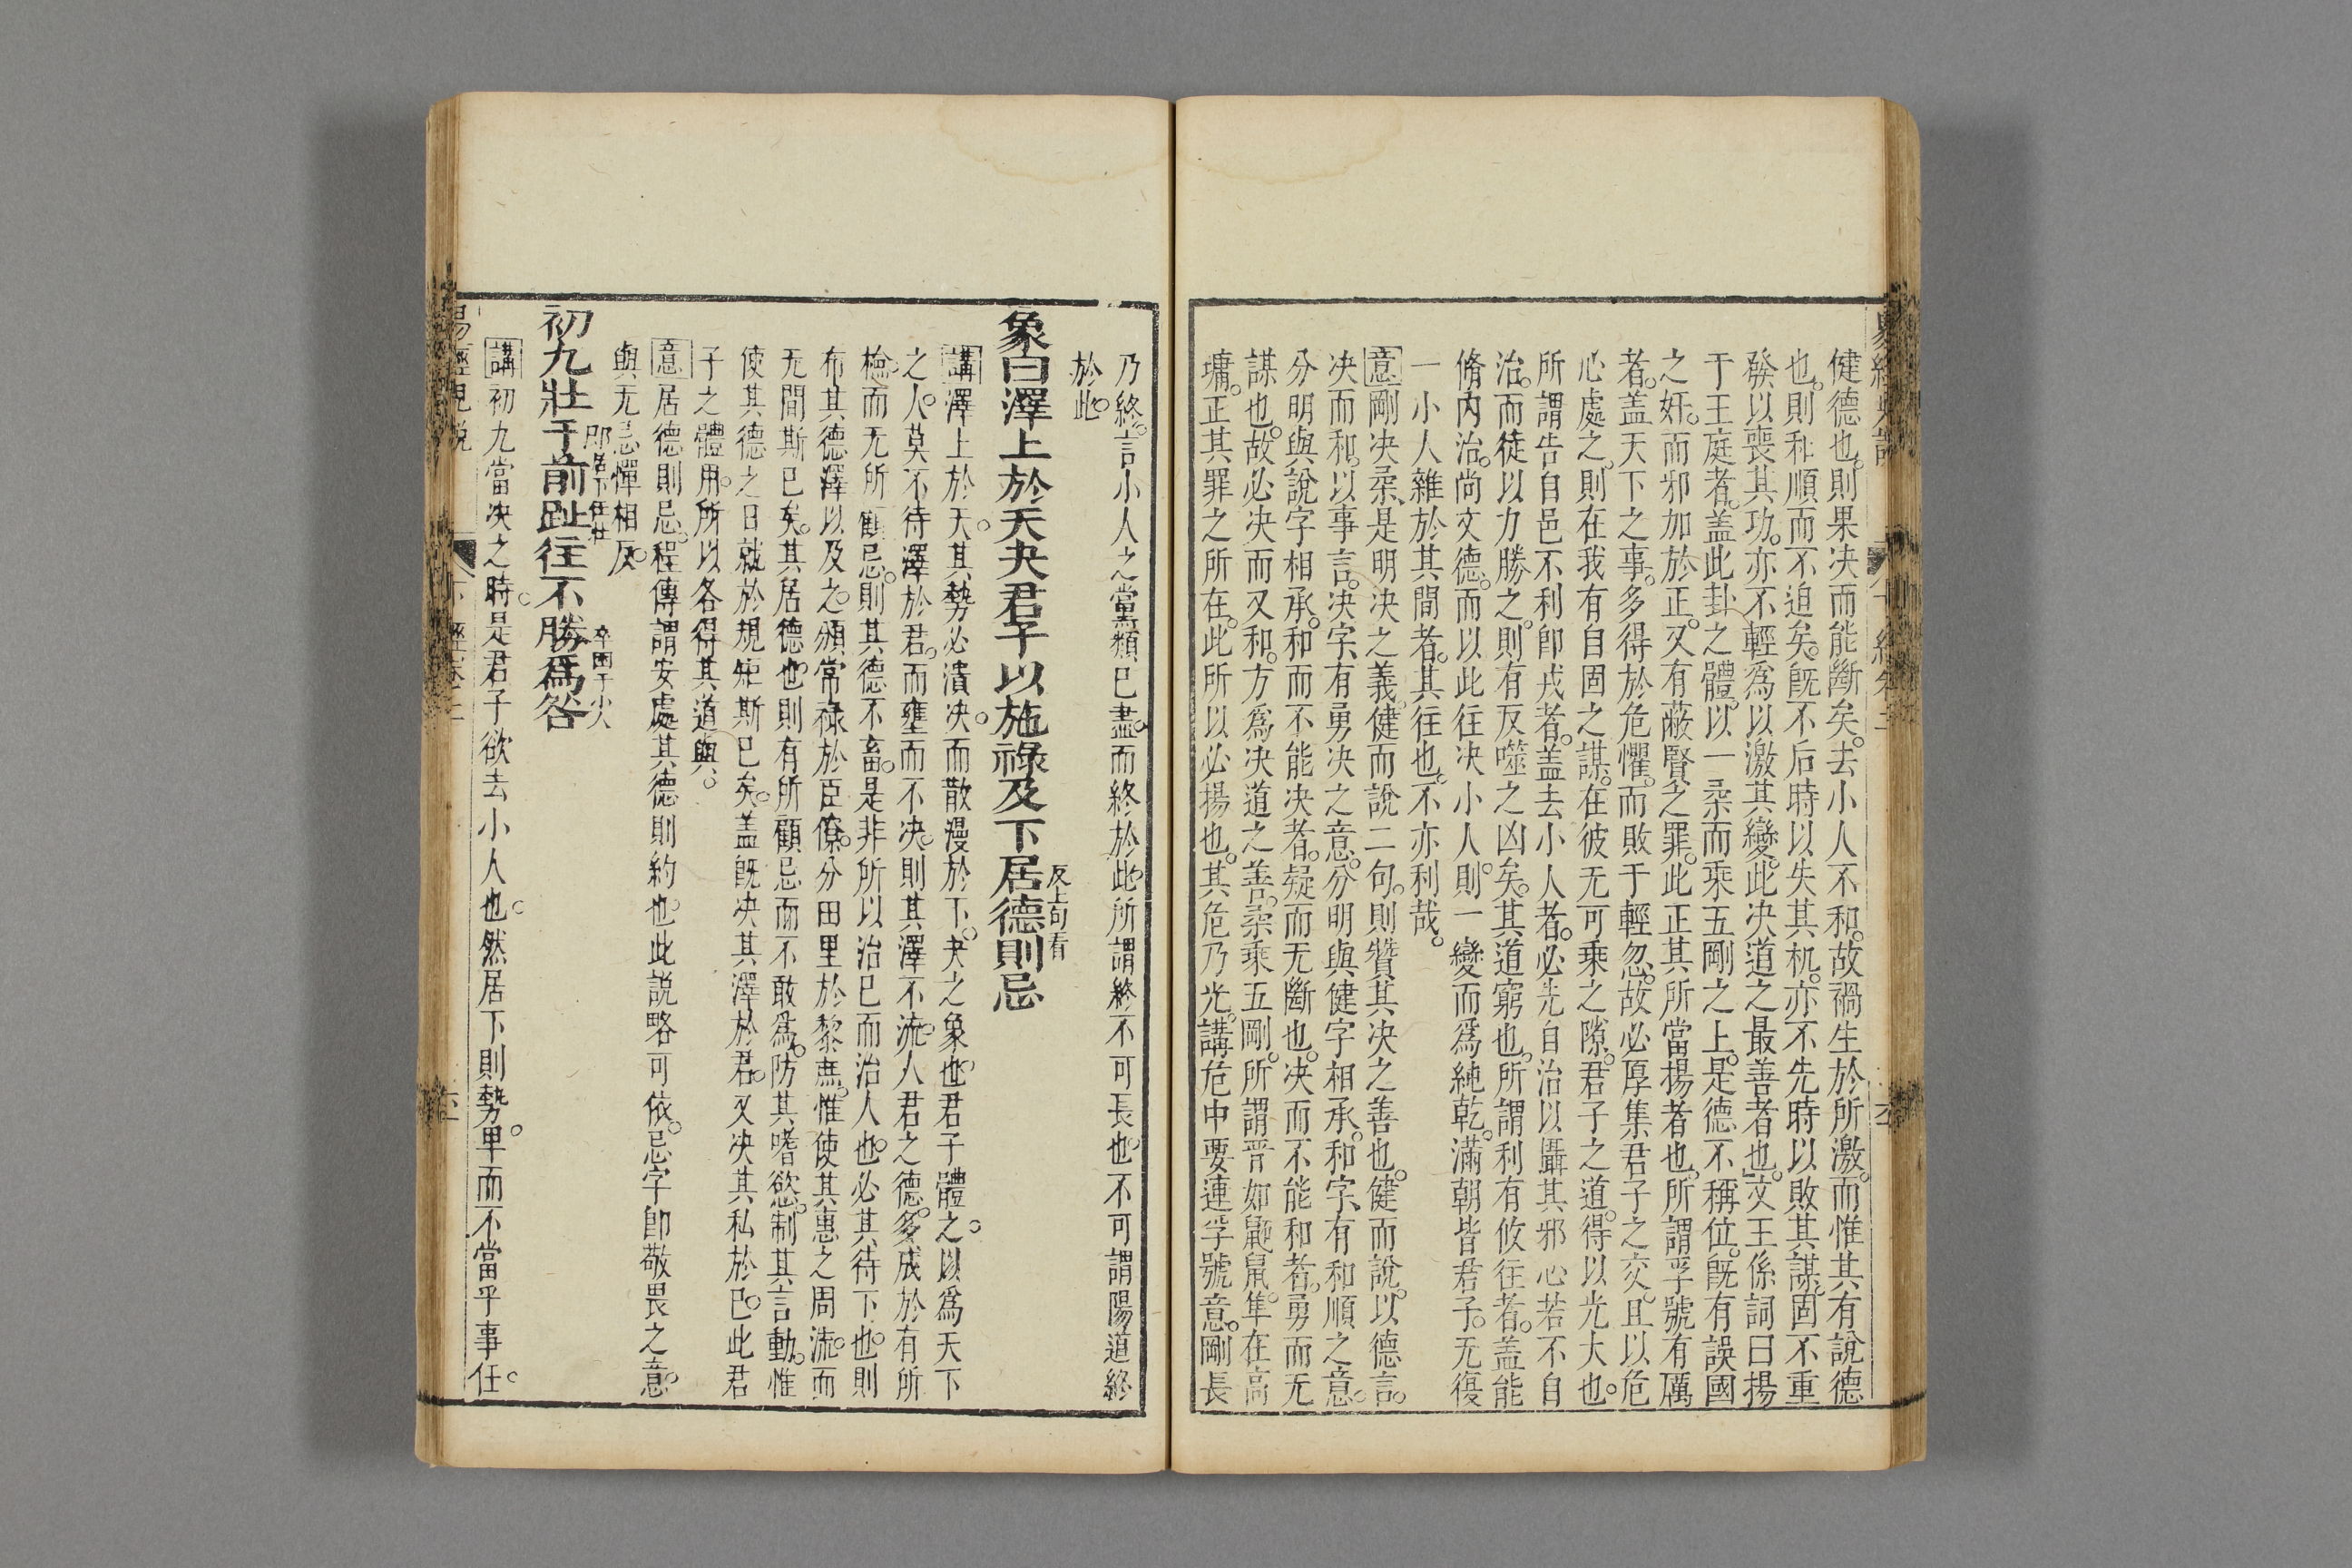 健德也則果决而能斷矣去小人不和故禍生於所激而惟其有說德
也則和順而不迫矣既不后時以失其机亦不先時以敗其謀固不重
發以喪其功亦不輕爲以激其變此决道之最善者也文王係詞曰揚
于王庭者蓋此卦之體以一柔而乘五剛之上是德不稱位既有誤國
之奸而邪加於正又有蔽賢之罪此正其所當揚者也所謂孚號有厲
者蓋天下之事多得於危懼而敗于輕忽故必厚集君子之交且以危
心處之則在我有自固之謀在彼无可乘之隙君子之道得以光大也
所謂告自邑不利卽戎者蓋去小人者必先自治以懾其邪心若不自
治而徒以力勝之則有反噬之凶矣其道窮也所謂利有攸往者蓋能
脩内治尚文德而以此往决小人則一變而爲純乾滿朝皆君子无復
一小人雜於其間者其往也不亦利哉
意剛决柔是明决之義健而說二句則贊其决之善也健而說以德言
决而和以事言决字有勇决之意分明與健字相承和字有和順之意
分明與說字相承和而不能决者疑而无斷也决而不能和者勇而无
謀也故必决而又和方爲决道之善柔乘五剛所謂晋如鼫鼠隼在高
墉正其罪之所在此所以必揚也其危乃光講危中要連孚號意剛長
乃終言小人之黨類已盡而終於此所謂終不可長也不可謂陽道終
於此
象曰澤上於天夬君子以施祿及下居德則忌
反上句看
講澤上於天其勢必潰决而散漫於下夬之象也君子體之以爲天下
之人莫不待澤於君而壅而不决則其澤不流人君之德多成於有所
檢而无所顧忌則其德不畜是非所以治已而治人也必其待下也則
布其德澤以及之頒常祿於臣僚分田里於黎庶惟使其惠之周流而
无間斯已矣其居德也則有所顧忌而不敢爲防其嗜慾制其言動惟
使其德之日就於規矩斯已矣蓋既决其澤於君又决其私於已此君
子之體用所以各得其道與
意居德則忌程傳謂安處其德則約也此說略可依忌字卽敬畏之意
與无忌憚相反
初九壯于前趾往不勝爲咎
卽居下任壯
卒困于小人
講初九當决之時是君子欲去小人也然居下則勢卑而不當乎事任